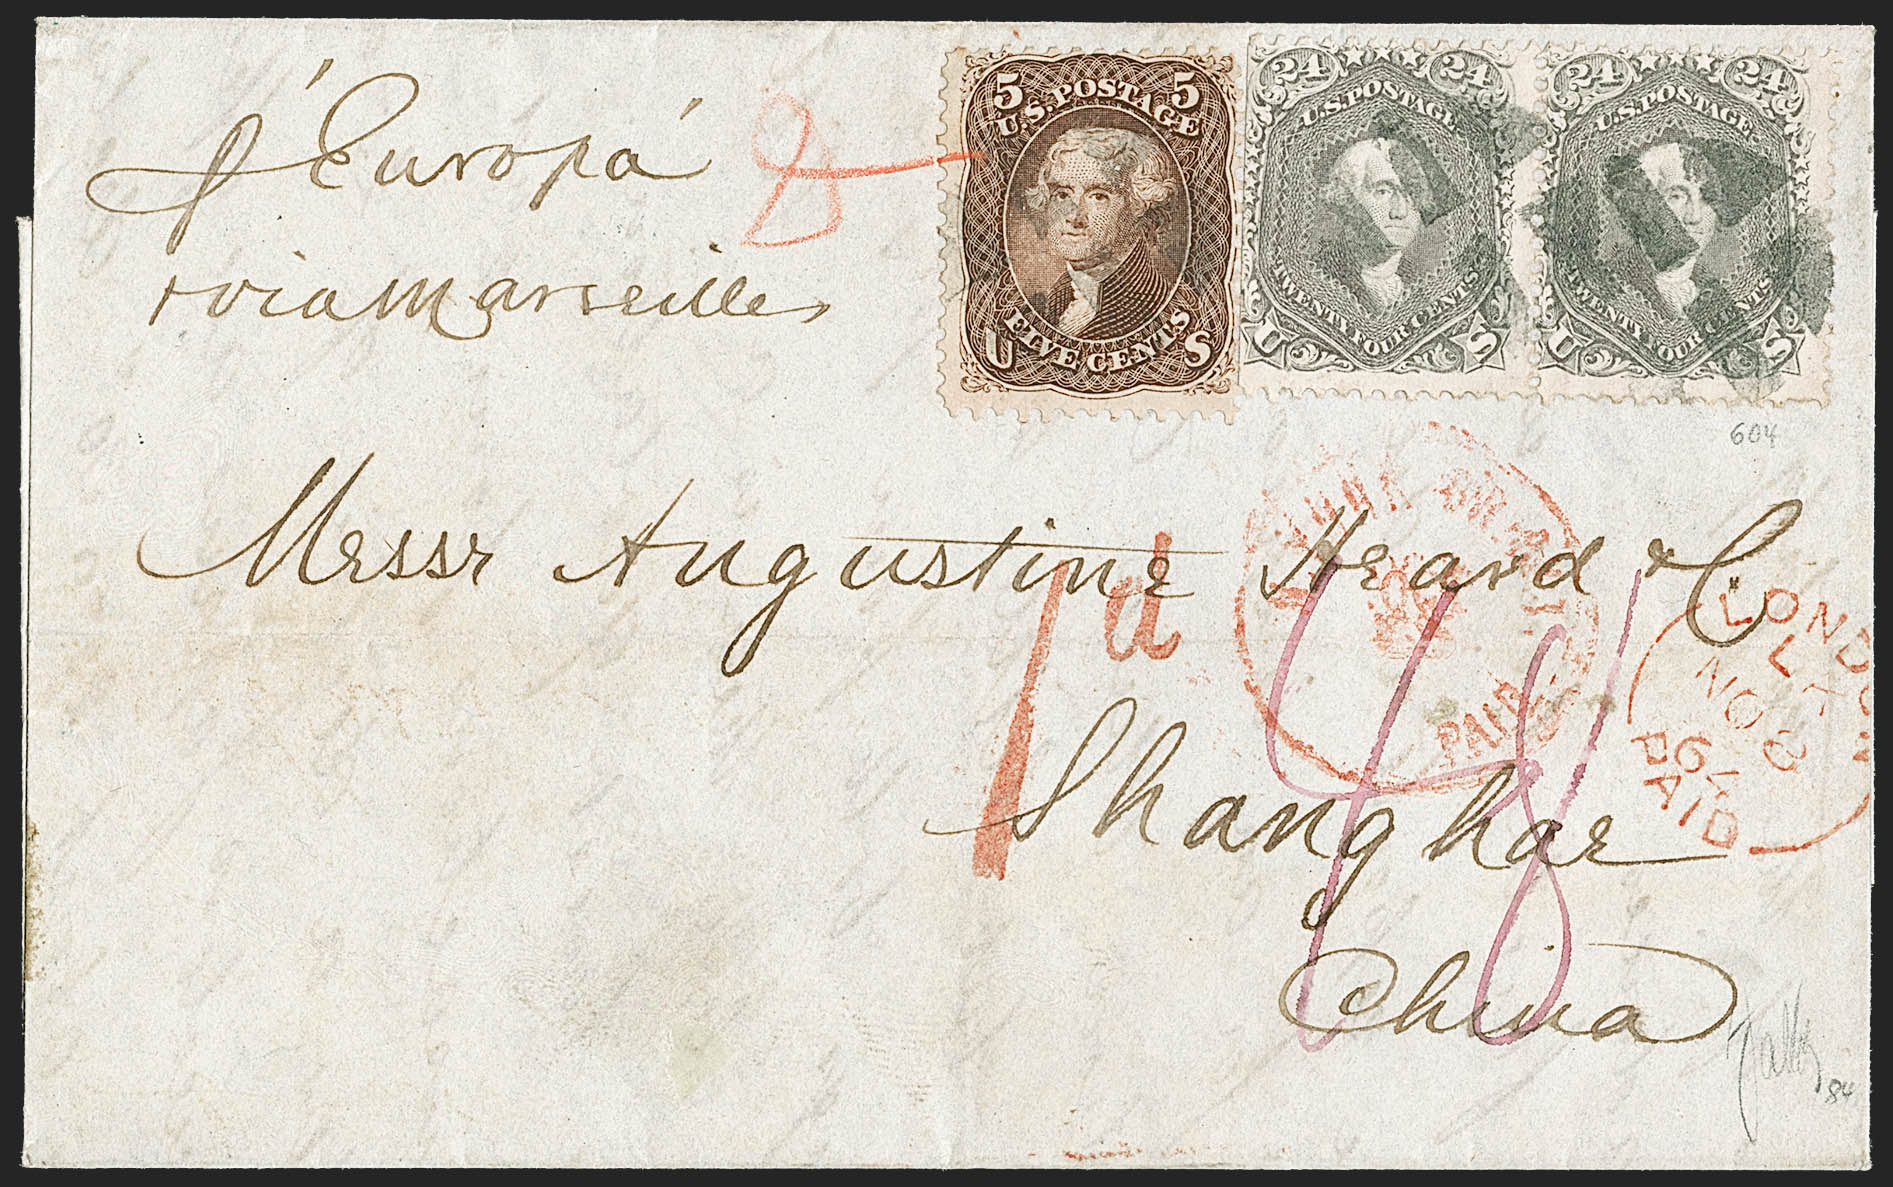 5 5
U.S. POSTAGE
FIVE CENTS
U S
24 24
U.S. POSTAGE
TWENTY FOUR CENTS
U S
24 24
U.S. POSTAGE
TWENTY FOUR CENTS
U S
604
p Europa
via Marseilles
Messr Augustine Heard & C
Shanghae
China
1 d
48
PAID
LONDON
NO
PAID
84